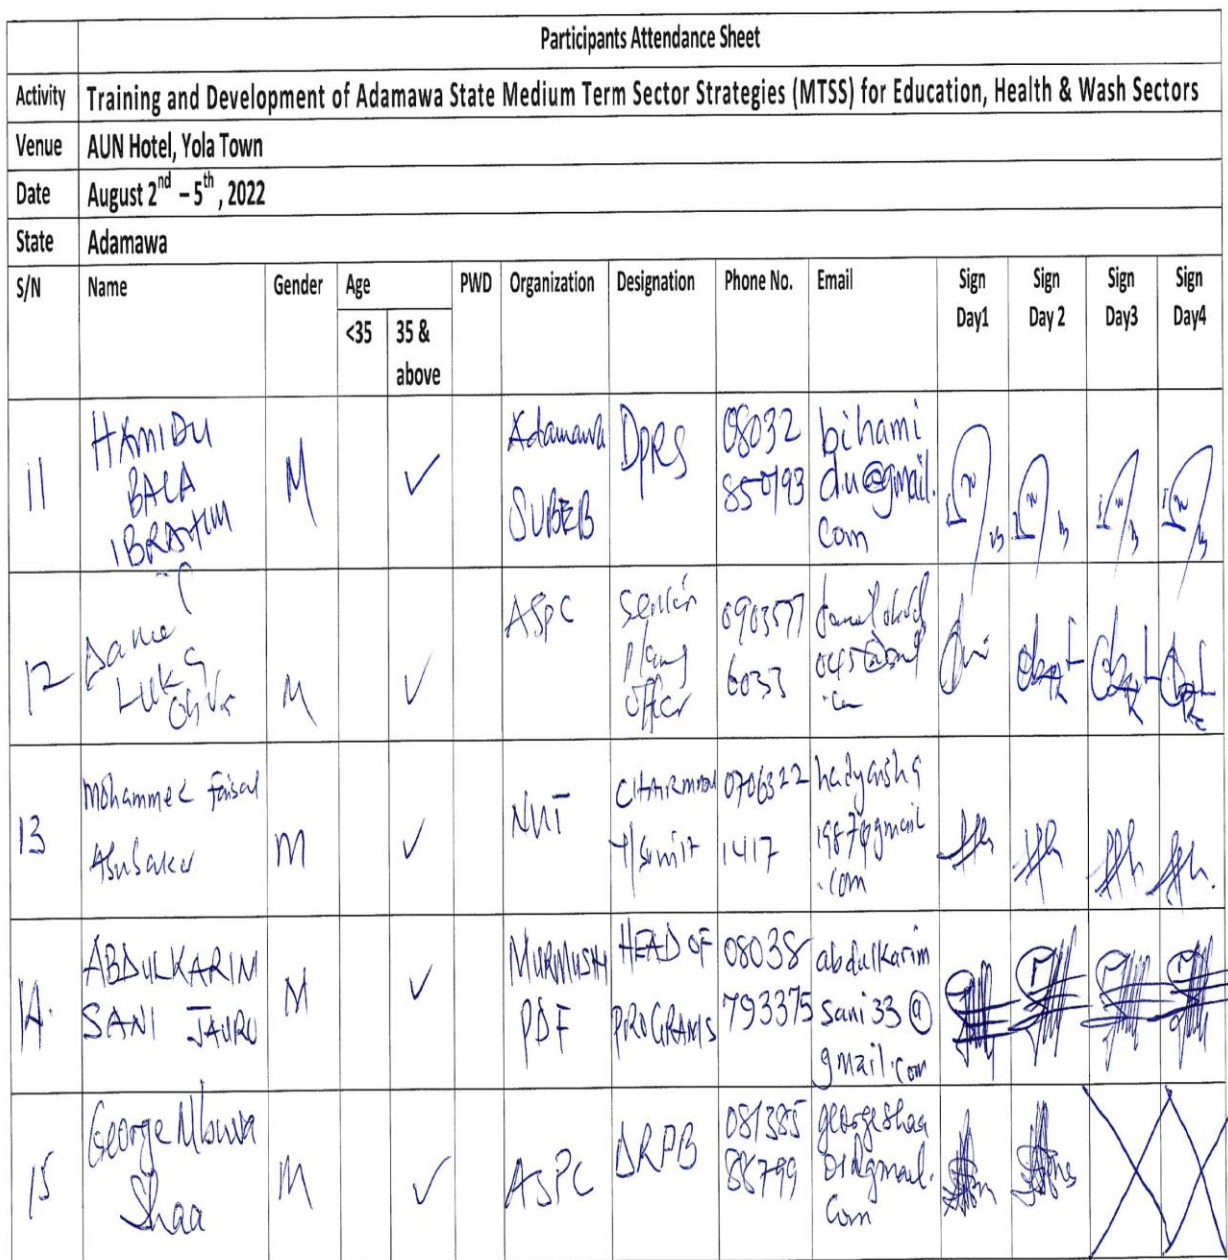 Participants Attendance Sheet
Activity Training and Development of Adamawa State Medium Term Sector Strategies (MTSS) for Education, Health & Wash Sectors
Venue AUN Hotel, Yola Town
Date August 2nd – 5th, 2022
State Adamawa
S/N Name Gender Age PWD Organization Designation Phone No. Email Sign Day1 Sign Day 2 Sign Day3 Sign Day4
<35 35 & above
11 HAMIDU BALA IBRAHIM M ✓ Adamawa SUBEB DPRS 08032 850193 bihami du@gmail. com
12 Luka M ✓ ASPC officer 6033
13 Mohammed Faisal Abubakar M ✓ NUT CHAIRMAN 0706322 1417 1987@gmail .com
14. ABDULKARIM SANI JAURO M ✓ PDF HEAD OF PROGRAMS 08038 793375 abdulkarim sani33@ gmail.com
15 George Shaa M ✓ ASPC DRPB 081385 88799 georgeshaa 01@gmail. com